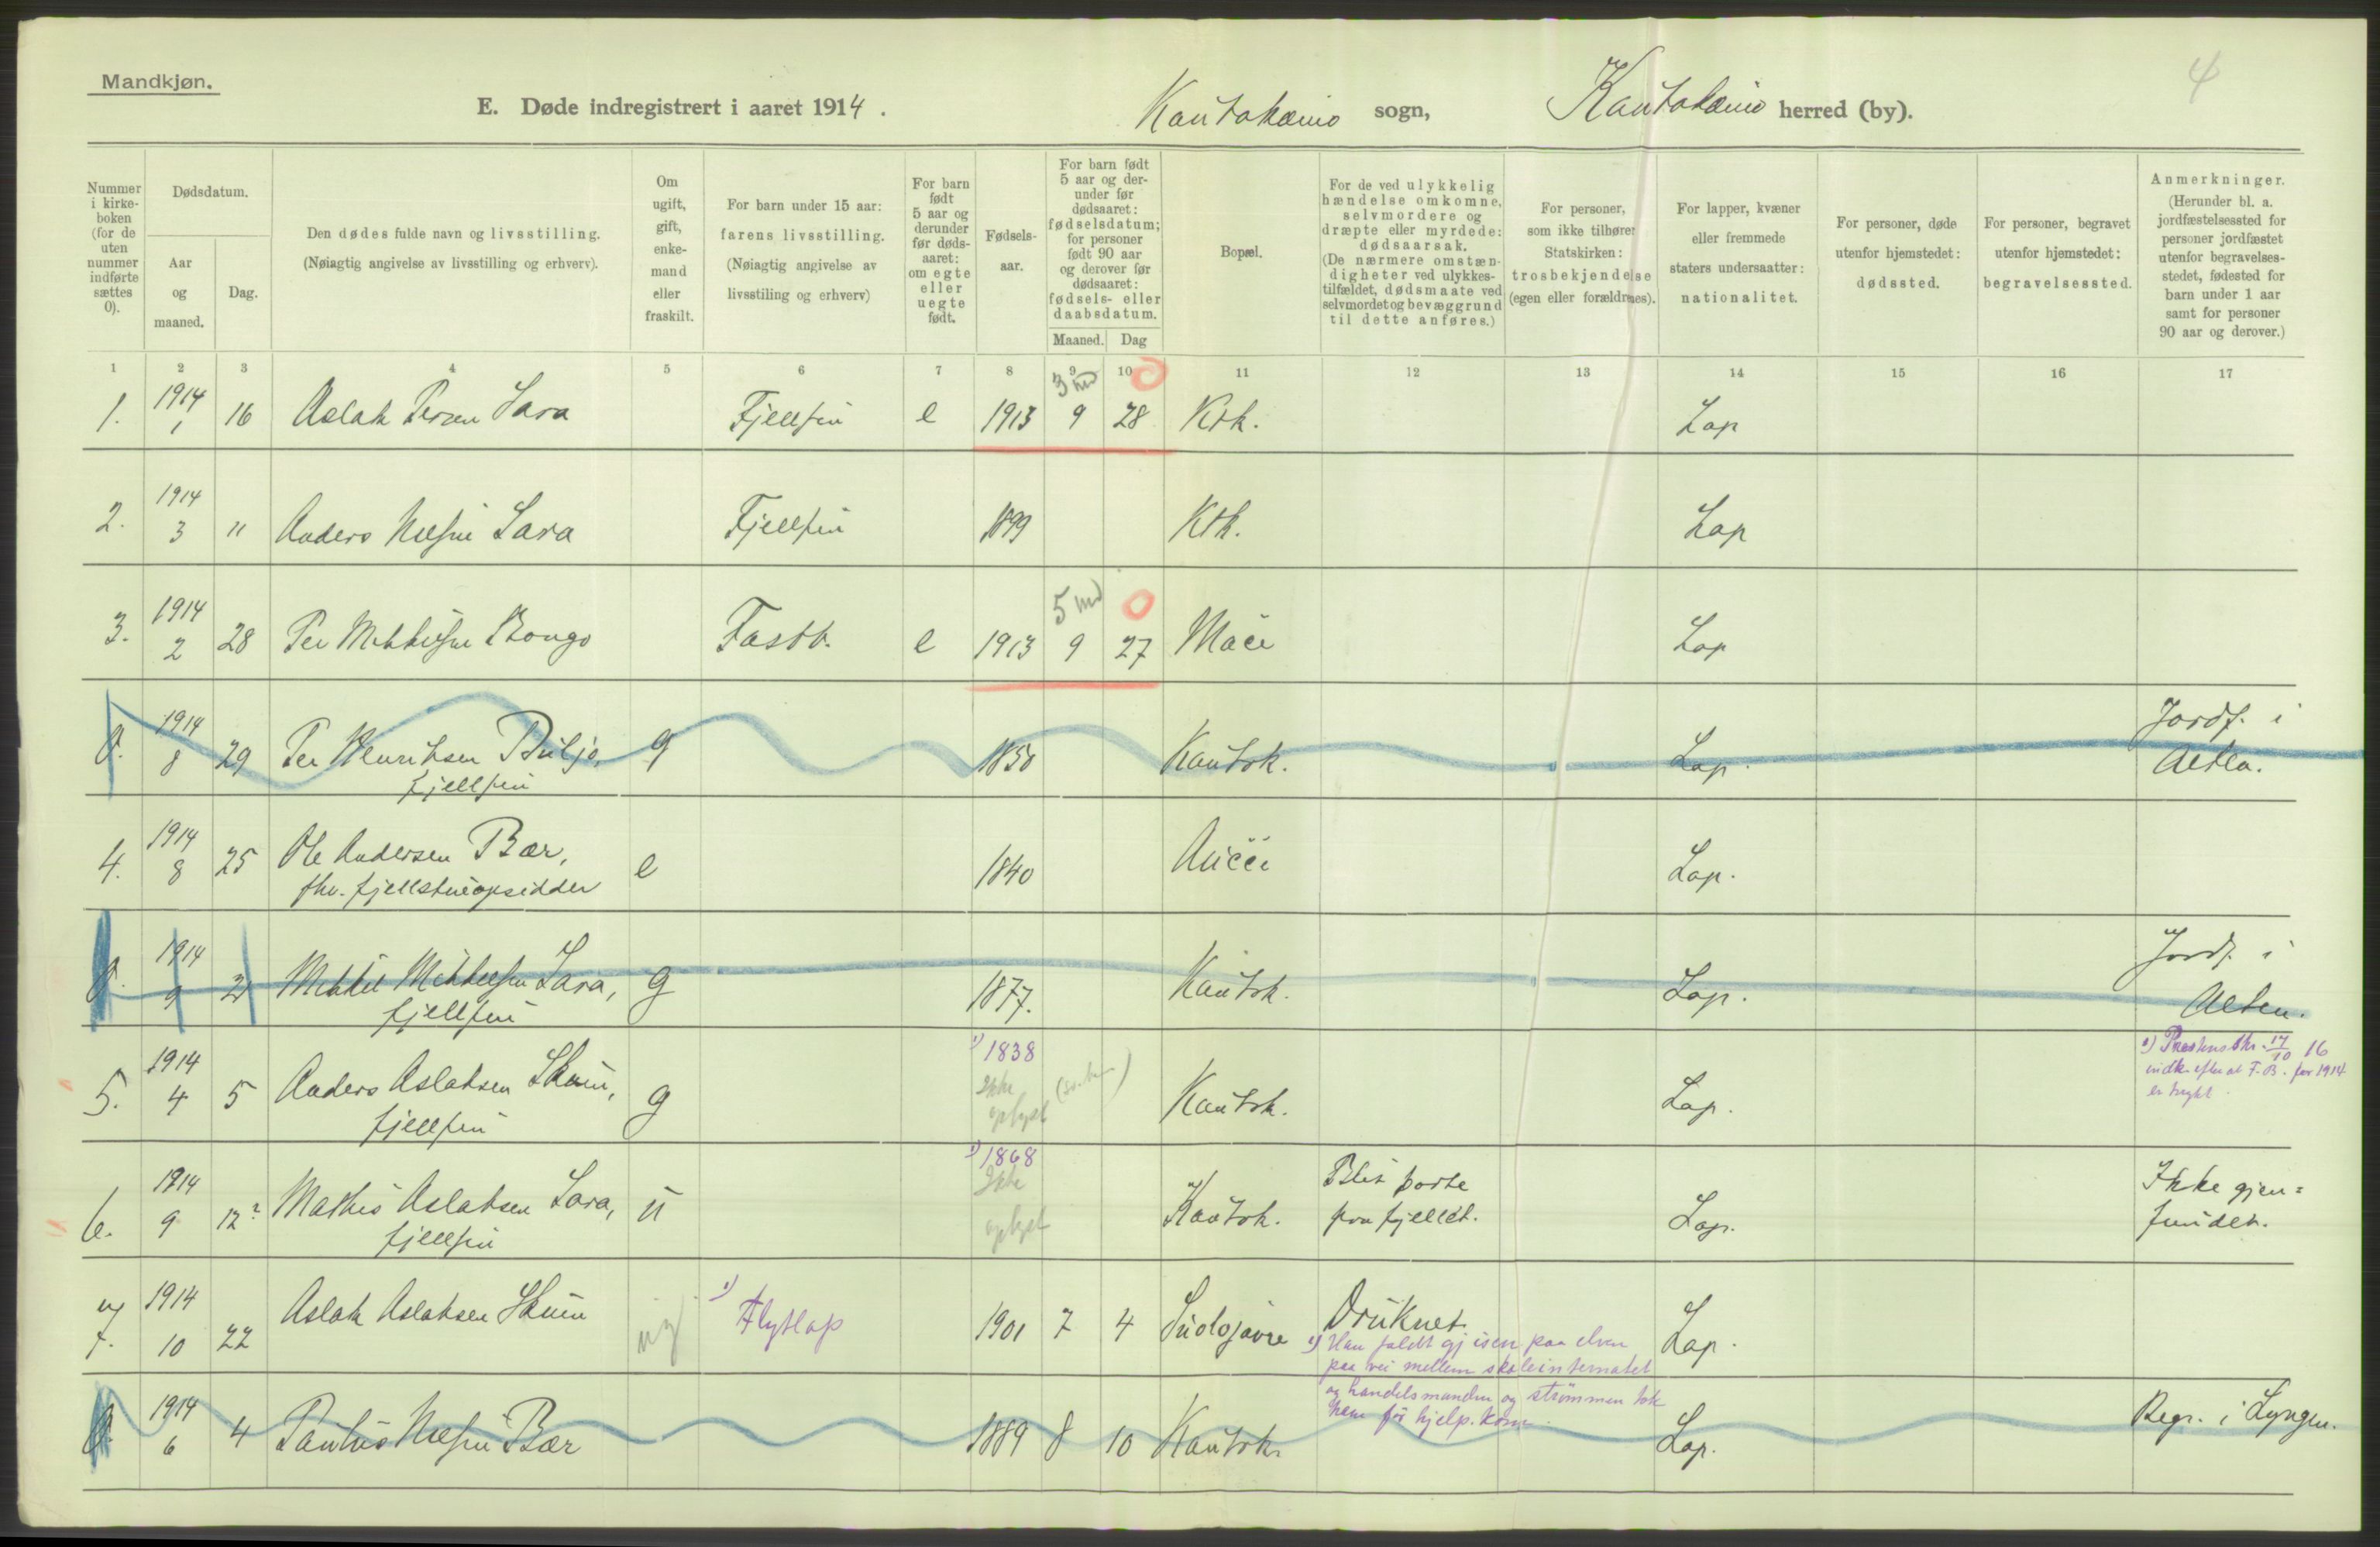 Mandkjøn.
4
E. Døde indregistrert i aaret 1914.
Kautokæino sogn, Kautokæino herred (by).
Nummer
i kirke-
boken
(for de
uten
nummer
indførte
sættes
0).
Dødsdatum.
Aar
og
maaned.
Dag.
Den dødes fulde navn og livsstilling.
(Nøiagtig angivelse av livsstilling og erhverv).
Om
ugift,
gift,
enke-
mand
eller
fraskilt.
For barn under 15 aar:
farens livsstilling.
(Nøiagtig angivelse av
livsstiling og erhverv)
For barn
født
5 aar og
derunder
før døds-
aaret:
om egte
eller
uegte
født.
Fødsels-
aar.
For barn født
5 aar og der-
under før
dødsaaret:
fødselsdatum;
for personer
født 90 aar
og derover før
dødsaaret:
fødsels- eller
daabsdatum.
Maaned. Dag
Bopæl.
For de ved ulykkelig
hændelse omkomne,
selvmordere og
dræpte eller myrdede:
dødsaarsak.
(De nærmere omstæn-
digheter ved ulykkes-
tilfældet, dødsmaate ved
selvmordet og bevæggrund
til dette anføres.)
For personer,
som ikke tilhører
Statskirken:
trosbekjendelse
(egen eller forældrenes).
For lapper, kvæner
eller fremmede
staters undersaatter:
nationalitet.
For personer, døde
utenfor hjemstedet:
dødssted.
For personer, begravet
utenfor hjemstedet:
begravelsessted.
Anmerkninger.
(Herunder bl. a.
jordfæstelsessted for
personer jordfæstet
utenfor begravelses-
stedet, fødested for
barn under 1 aar
samt for personer
90 aar og derover.)
1 2 3 4 5 6 7 8 9 10 11 12 13 14 15 16 17
3 md 0
1. 1914 1 16 Aslak Persen Sara Fjellfin e 1913 9 28 Ktk. Lap
2. 1914 3 " Anders Nilsen Sara Fjellfin 1899 Ktk. Lap
5 md 0
3. 1914 2 28 Per Mikkelsen Bongo Fastb. e 1913 9 27 Maci Lap
0. 1914 8 29 Per Henriksen Buljo, g 1850 Kautok. Lap. Jordf. i
fjellfin Alten.
4. 1914 8 25 Ole Andersen Bær, e 1840 Aucci Lap.
fhv. fjellstueopsidder
0. 1914 9 21 Mikkel Mikkelsen Sara, g 1877. Kautok. Lap. Jordf. i
fjellfin Alten.
5. 1914 4 5 Anders Aslaksen Skum, g ¹) 1838 Kautok. Lap. ¹) Prestens skr. 17/10 16
fjellfin Ikke oplyst indk. efter at F.B. for 1914
er trykt.
6. 1914 9 12? Mathis Aslaksen Sara, u ¹) 1868 Kautok. Blit borte Lap. Ikke gjen=
fjellfin Ikke oplyst paa fjeldet. funden.
7. 1914 10 22 Aslak Aslaksen Skum ug ¹) Flytlap 1901 7 4 Suolojavre Druknet. Lap.
¹) Han faldt gj isen paa elven
paa vei mellem skoleinternatet
og handelsmanden og strømmen tok
ham før hjelp. kom.
0. 1914 6 4 Paulus Nilsen Bær 1889 8 10 Kautok. Lap. Begr. i Lyngen.